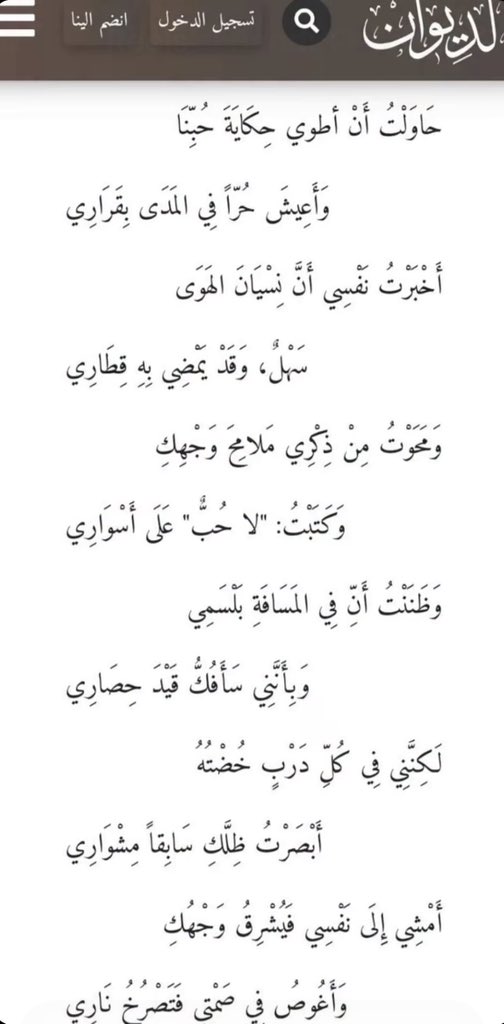 الديوان
تسجيل الدخول
انضم الينا
حَاوَلْتُ أَنْ أطوي حِكَايَةَ حُبِّنَا
وَأَعِيشَ حُرّاً فِي المَدَى بِقَرَارِي
أَخْبَرْتُ نَفْسِي أَنَّ نِسْيَانَ الهَوَى
سَهْلٌ، وَقَدْ يَمْضِي بِهِ قِطَارِي
وَمَحَوْتُ مِنْ ذِكْرِي مَلامِحَ وَجْهِكِ
وَكَتَبْتُ: "لا حُبٌّ" عَلَى أَسْوَارِي
وَظَنَنْتُ أَنِّ فِي المَسَافَةِ بَلْسَمِي
وَبِأَنَّنِي سَأَفُكُّ قَيْدَ حِصَارِي
لَكِنَّنِي فِي كُلِّ دَرْبٍ خُضْتُهُ
أَبْصَرْتُ ظِلَّكِ سَابِقاً مِشْوَارِي
أَمْشِي إِلَى نَفْسِي فَيُشْرِقُ وَجْهُكِ
وَأَغُوصُ فِي صَمْتِي فَتَصْرُخُ نَارِي